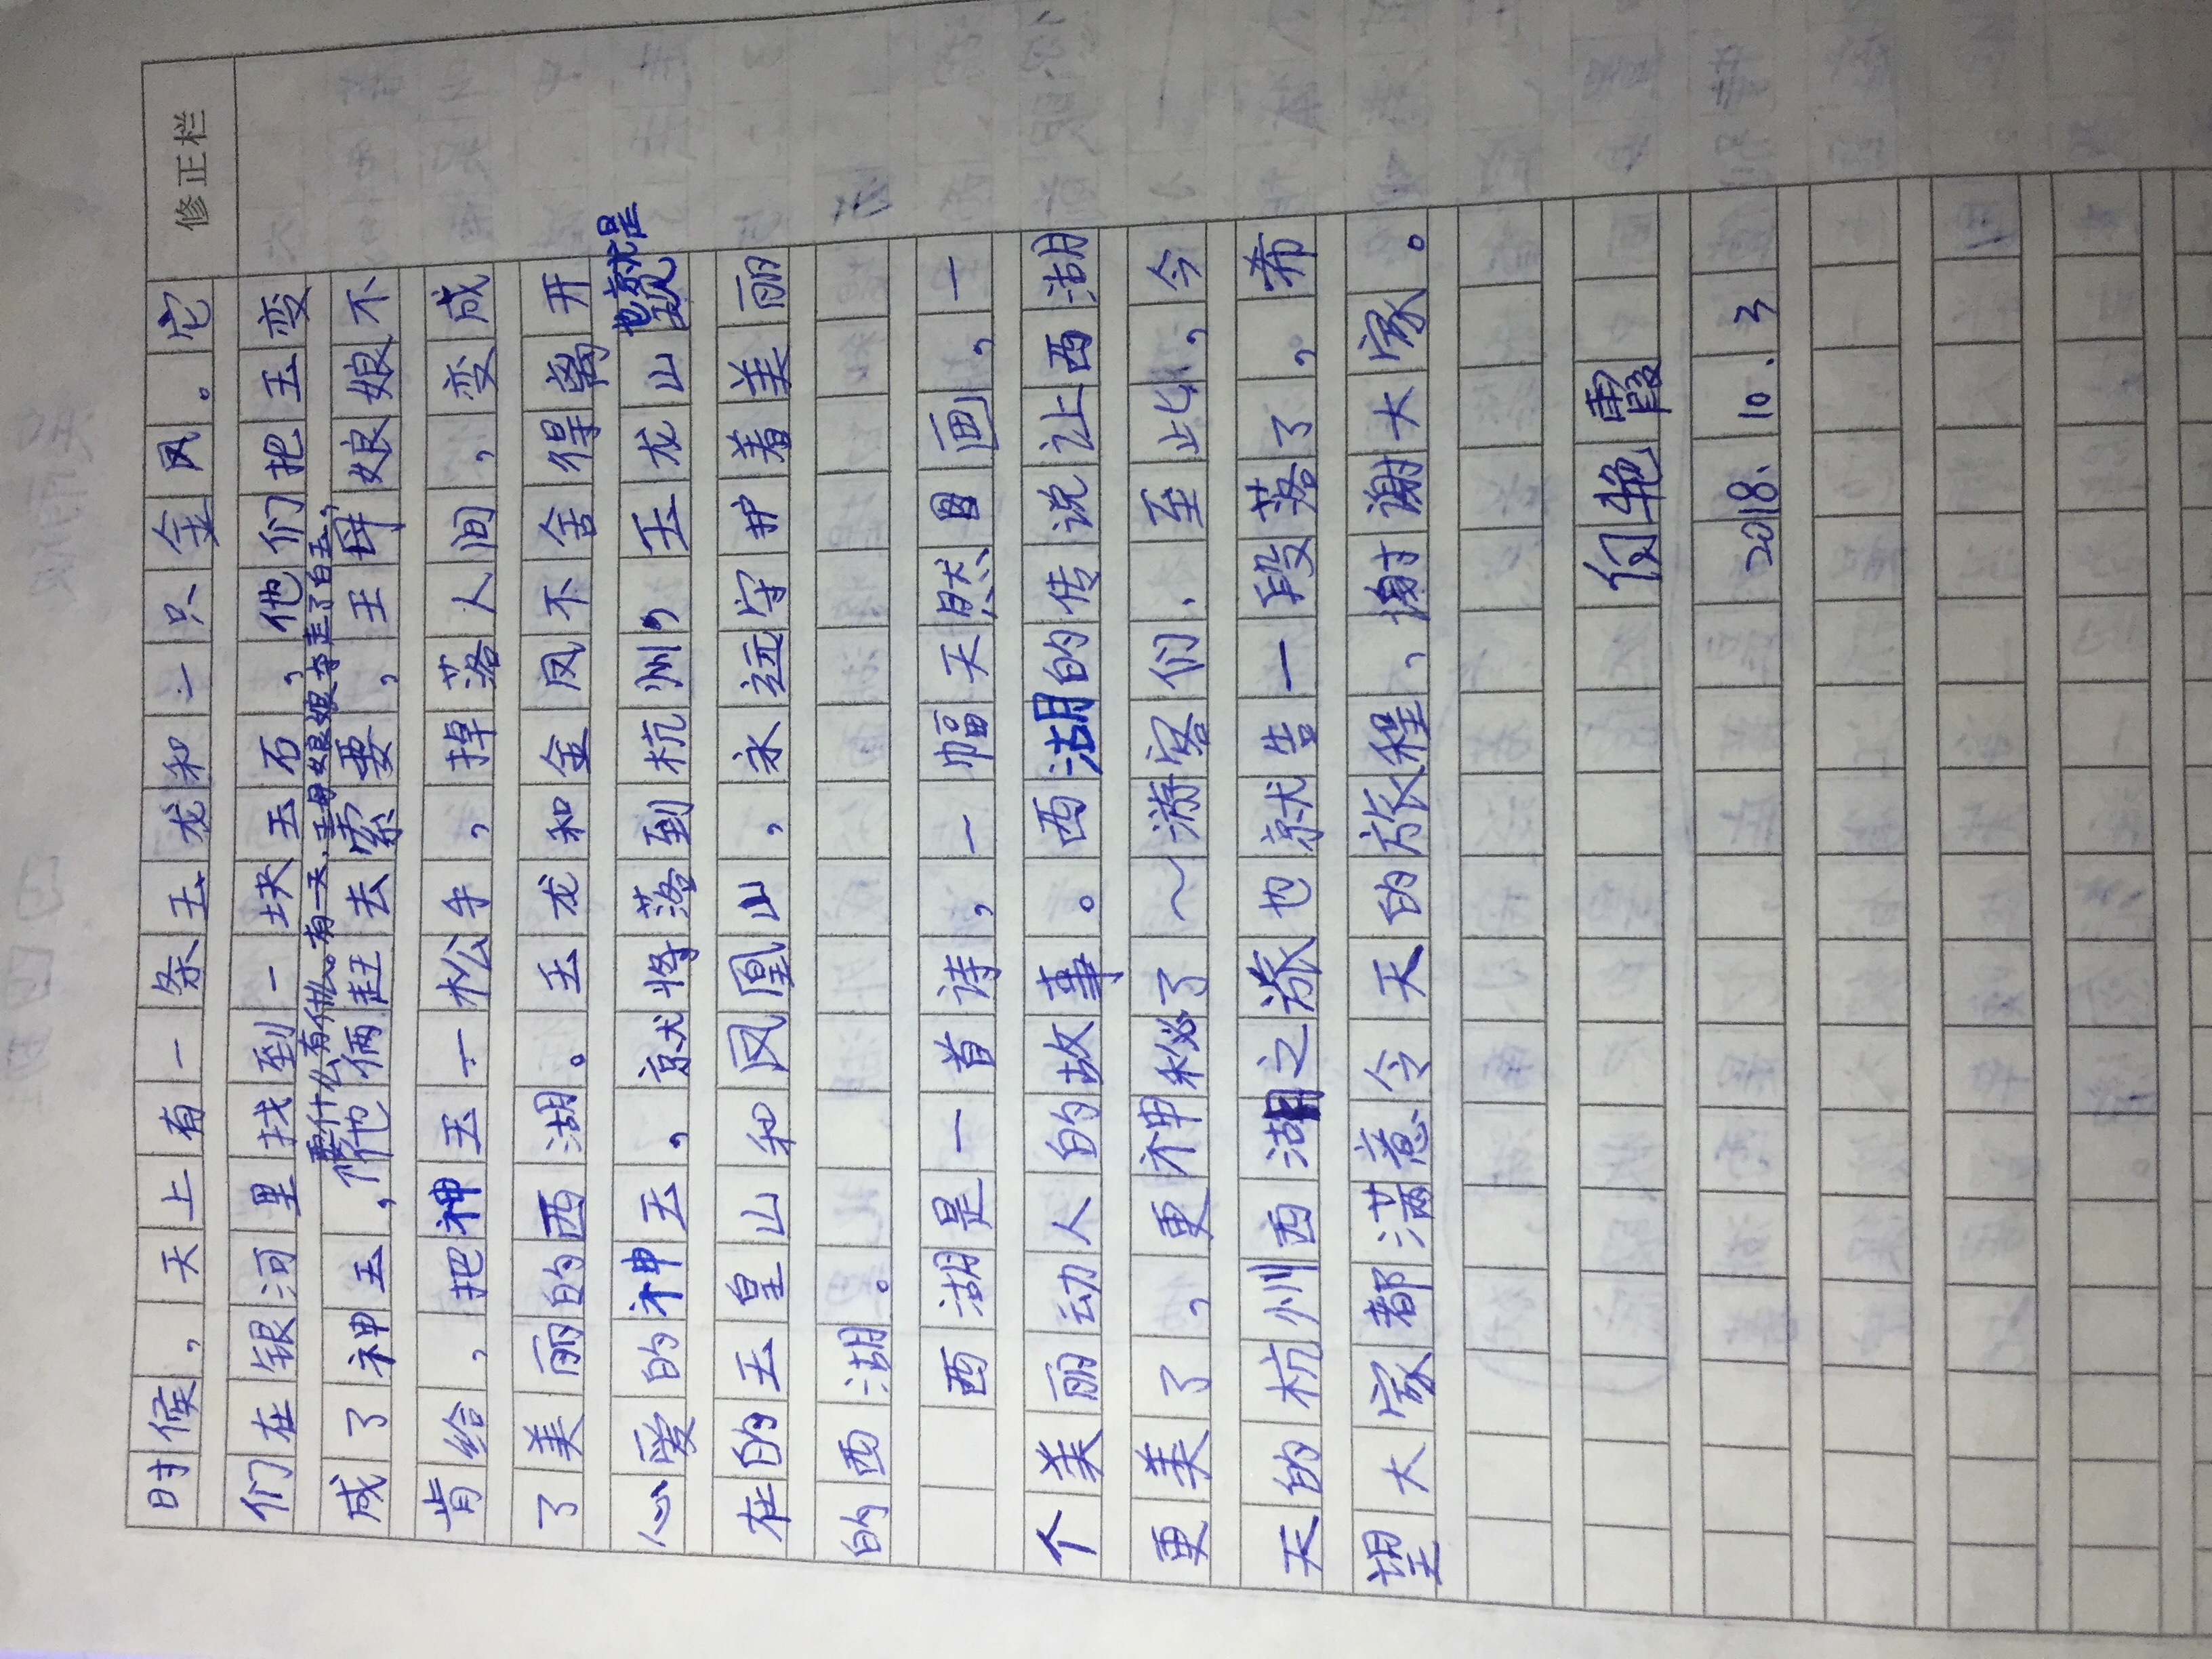 修正栏
时候，天上有一条玉龙和一只金凤。它
们在银河里找到一块玉石，他们把玉变
要什么有什么。有一天，王母娘娘拿走了白玉，
成了神玉，他俩赶去索要，王母娘娘不
肯给，把神玉一松手，掉落人间，变成
了美丽的西湖。玉龙和金凤不舍得离开
也就是
心爱的神玉，就将落到杭州，玉龙山
在的玉皇山和凤凰山，永远守护着美丽
的西湖。
西湖是一首诗，一幅天然图画，一
个美丽动人的故事。西湖的传说让西湖
更美了，更神秘了～游客们，至此，今
天的杭州西湖之旅也就告一段落了，希
望大家都满意今天的旅程，谢谢大家。
付艳霞
2018.10.3